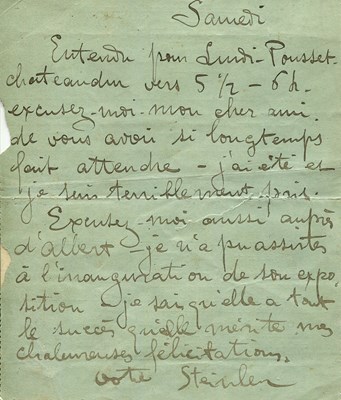 Samedi
Entendu pour Lundi - Pousset-
chateaudun vers 5 1/2 - 6 h.
excusez-moi - mon cher ami.
de vous avoir si longtemps
fait attendre - j'ai été et
je suis terriblement pris.
Excusez-moi aussi auprès
d'albert - je n'a pu assister
à l'inauguration de son expo-
sition - je sais qu'elle a tout
le succès qu'elle mérite mes
chaleureuses félicitations.
votre Steinlen